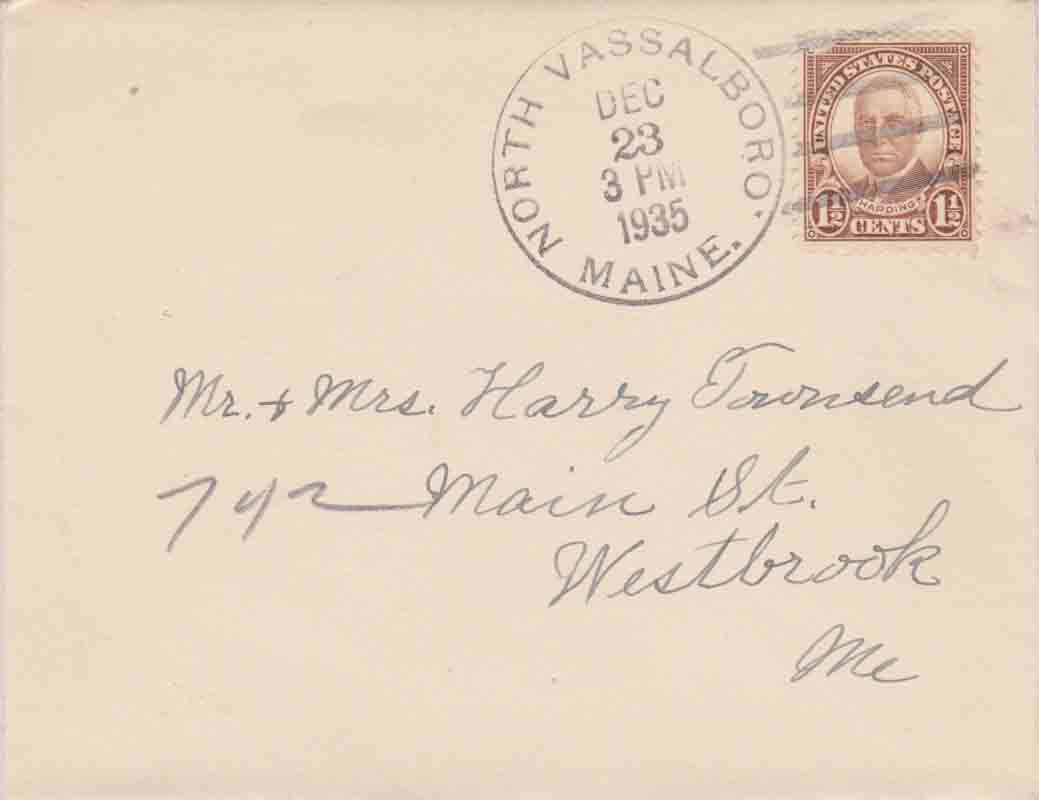 NORTH VASSALBORO.
DEC
23
3 PM
1935
MAINE.
UNITED STATES POSTAGE
HARDING
1½ CENTS 1½
Mr. + Mrs. Harry Townsend
742 Main St.
Westbrook
Me